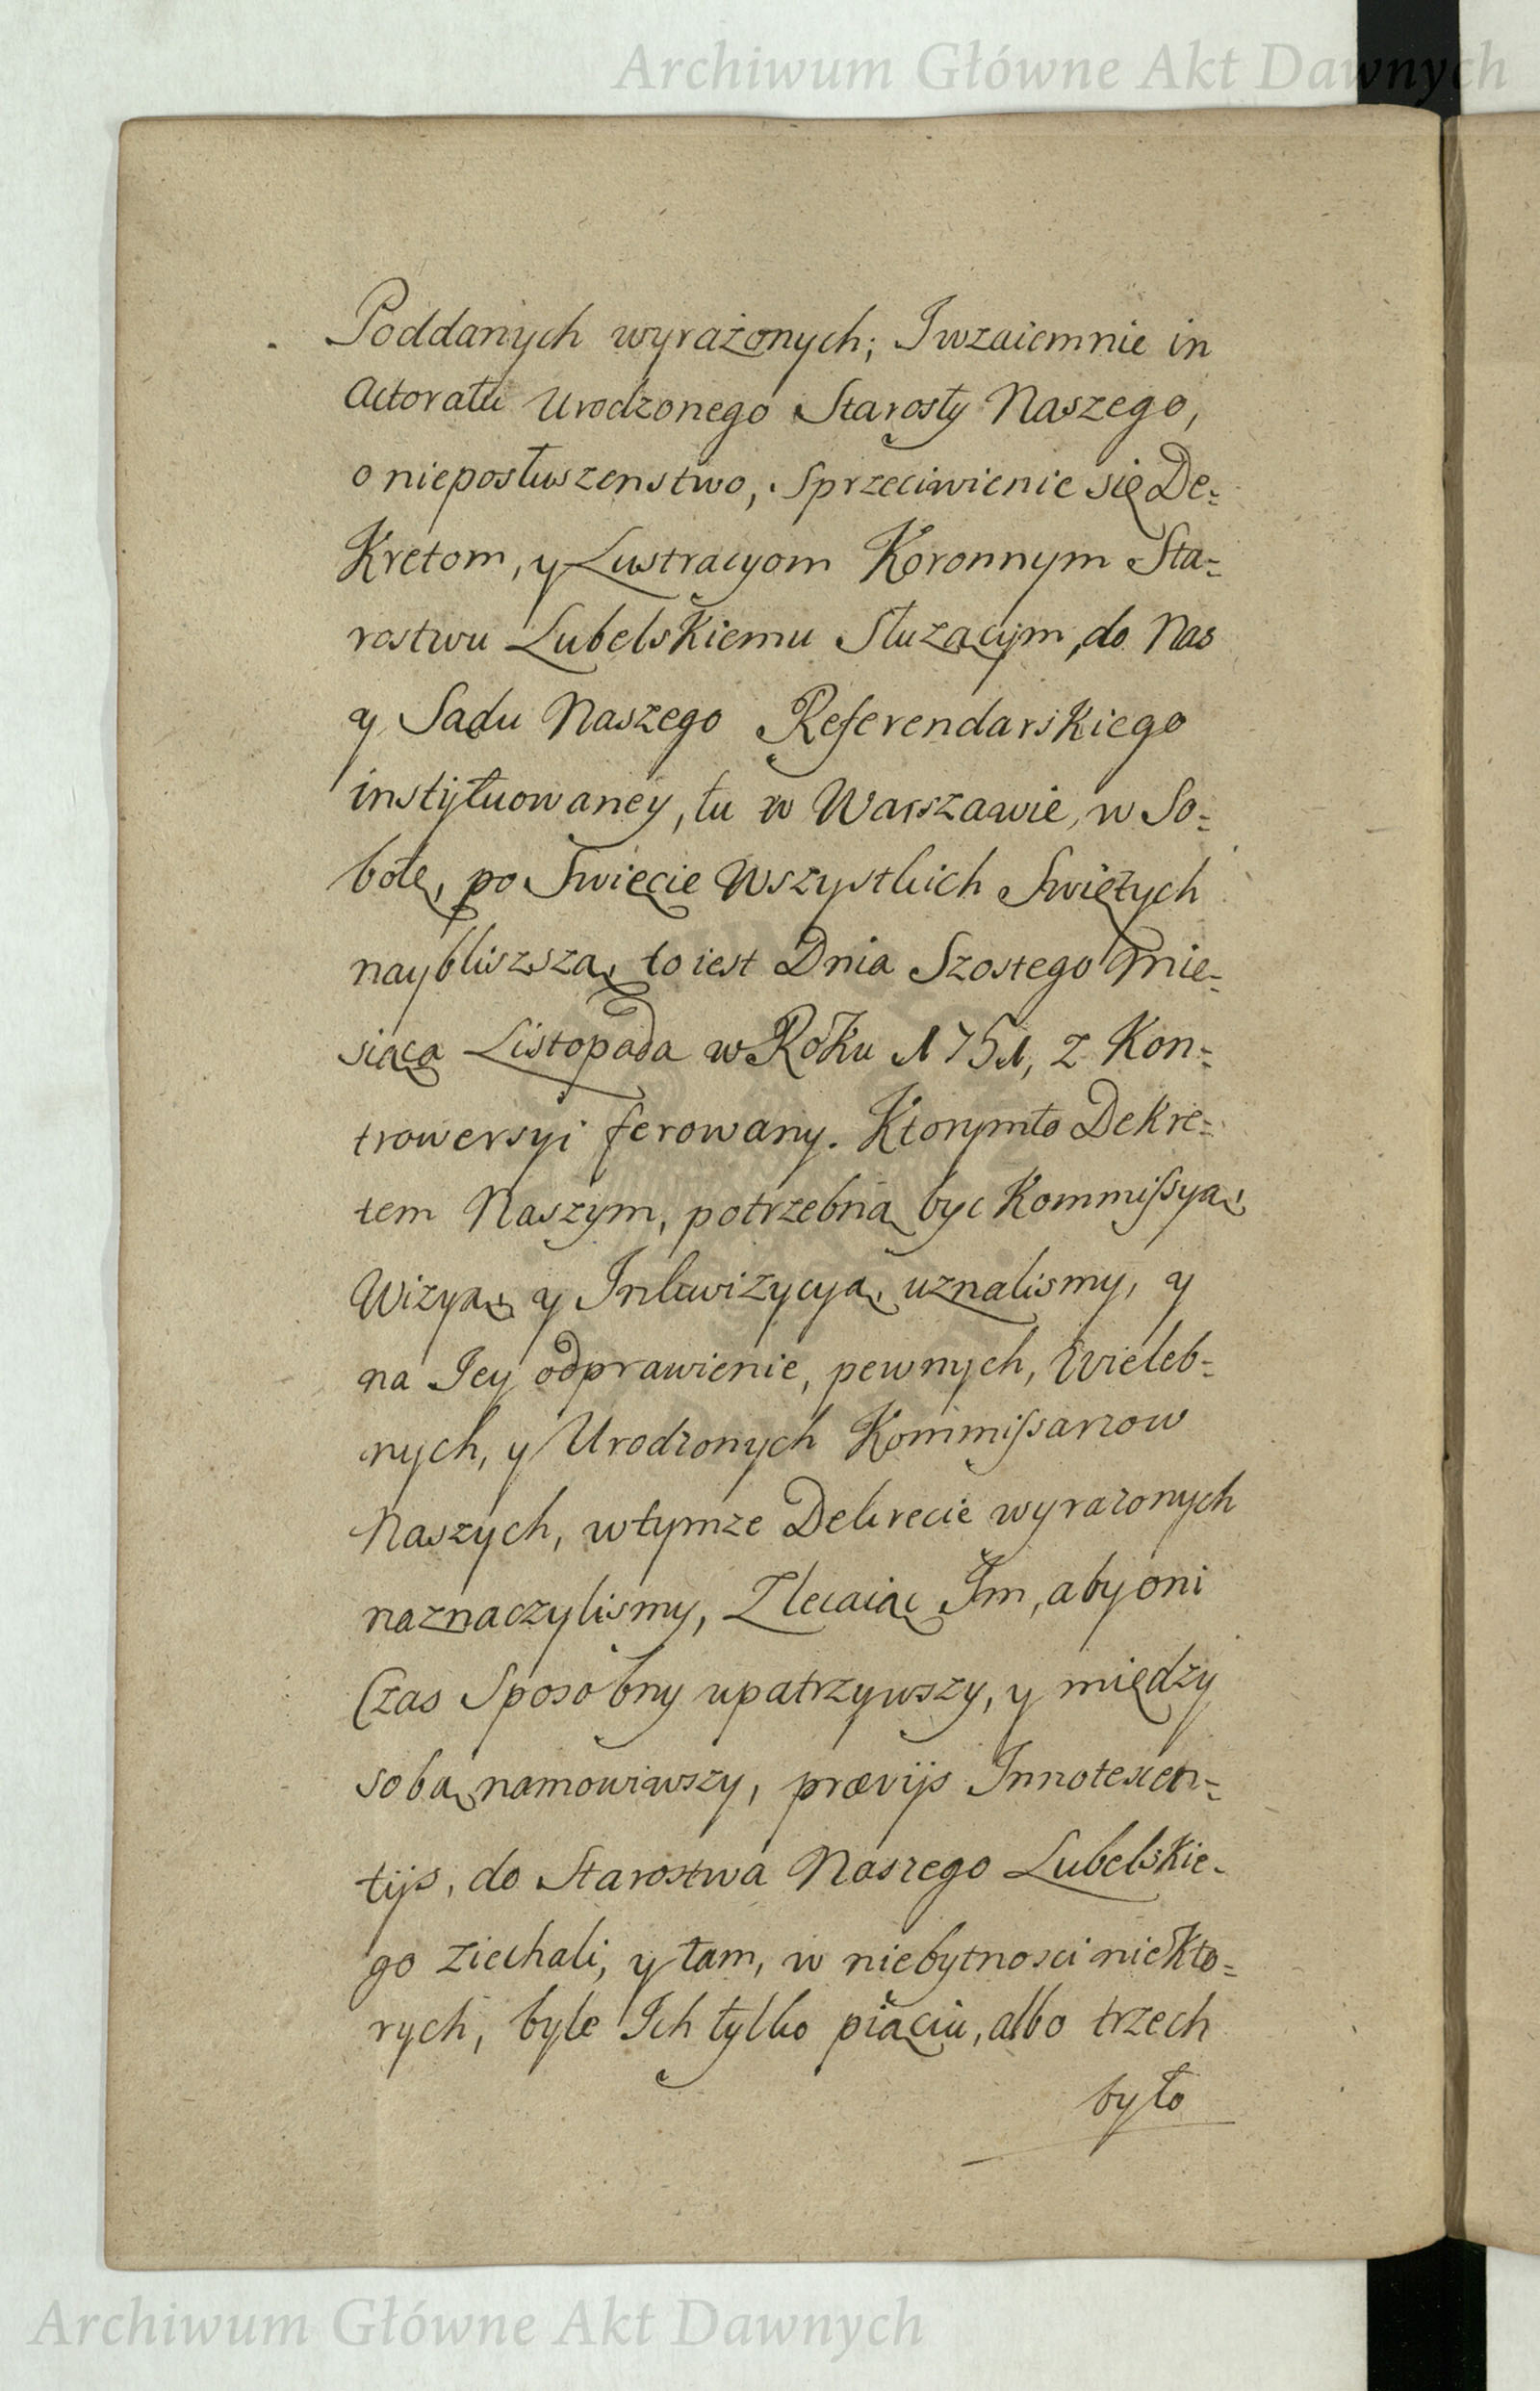 Archiwum Główne Akt Dawnych
Poddanych wyrażonych; Iwzaiemnie in
Actoratu Urodzonego Starosty Naszego,
o nieposłuszenstwo, Sprzeciwienie się De=
Kretom, y Lustracyom Koronnym Sta=
rostwu Lubelskiemu Służącym, do Nas
y Sądu Naszego Referendarskiego
instytuowaney, tu w Warszawie, w So=
botę, po Swięcie Wszystkich Swiętych
naybliższą, to iest Dnia Szostego Mie=
siąca Listopada w Roku 1751, z Kon=
trowersyi ferowany. Ktorymto Dekre=
tem Naszym, potrzebną byc Kommissyą,
Wizyą, y Inkwizycyą, uznalismy, y
na Iey odprawienie, pewnych, Wieleb=
nych, y Urodzonych Kommissarzow
Naszych, wtymze Dekrecie wyrazonych
naznaczylismy, Zlecaiąc Im, aby oni
Czas Sposobny upatrzywszy, y między
sobą namowiwszy, prævijs Innotescen=
tijs, do Starostwa Naszego Lubelskie=
go ziechali, y tam, w niebytnosci niekto=
rych, byle Ich tylko piąciu, albo trzech
było
Archiwum Główne Akt Dawnych